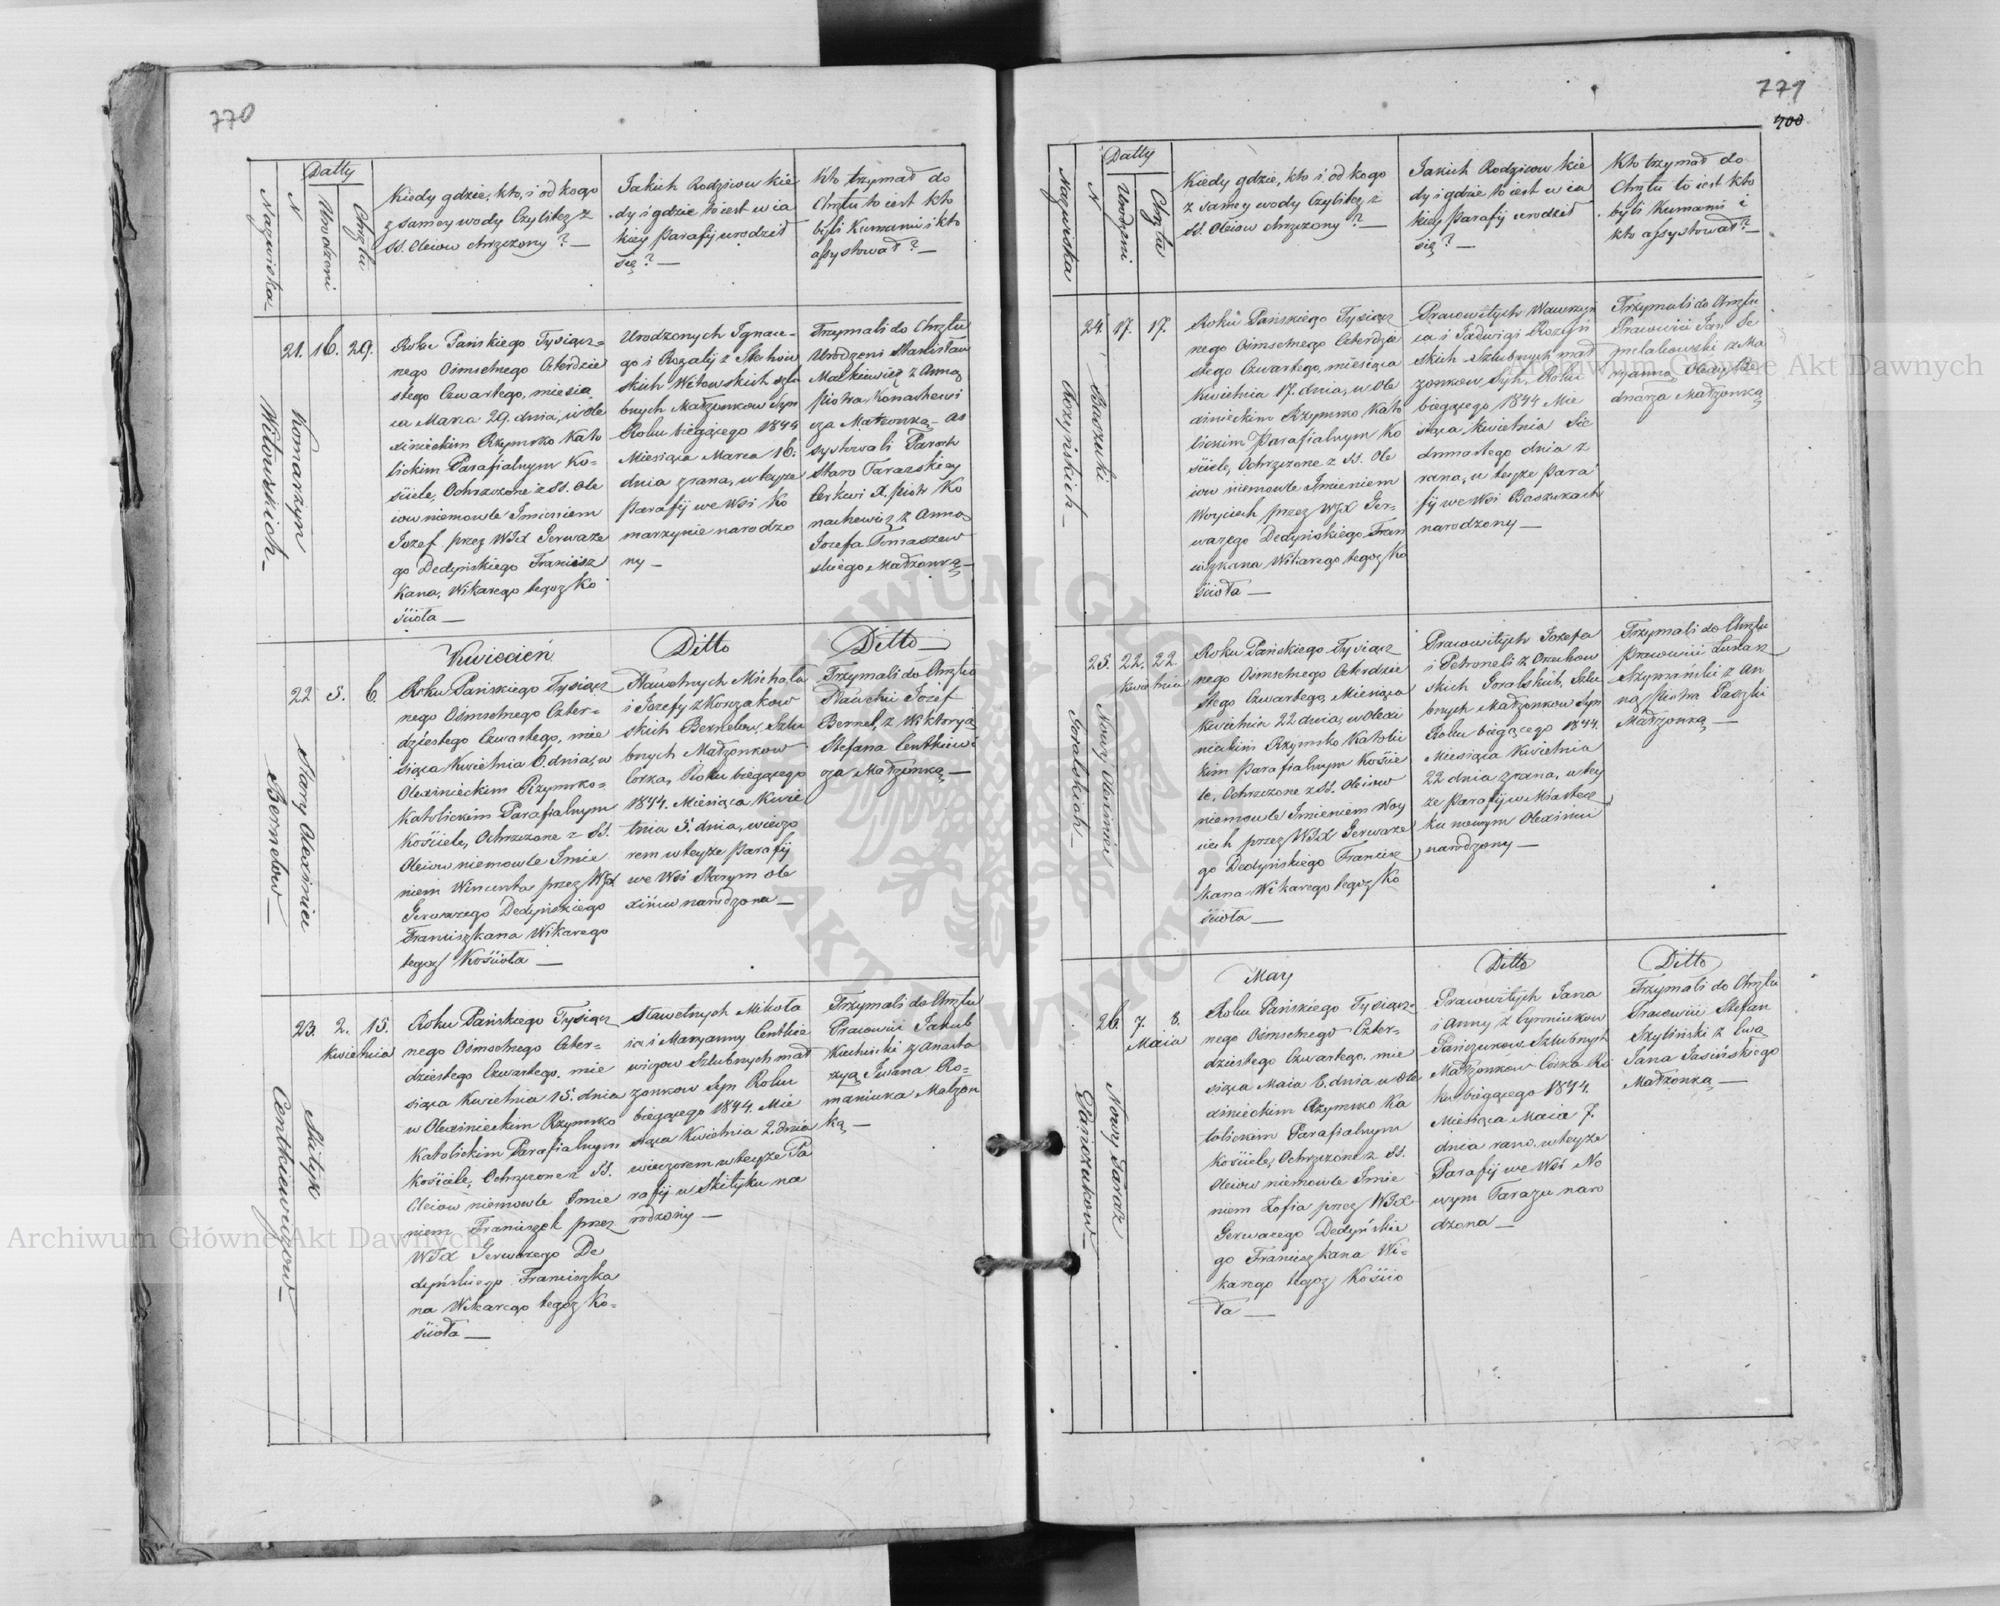 770
Datty
Nazwiska
N
Urodzeni
Chrztu
Kiedy gdzie, kto, i od kogo
z samey wody Czyliteż z
SS. Oleiow chrzczony ? —
Jakich Rodzicow kie
dy i gdzie to iest w ia
kiey Parafij urodził
się ? —
Kto trzymał do
Chrztu to iest kto
byli Kumami i kto
assystował ? —
21. 16. 29.
Komarzyn
Witowskich —
Roku Pańskiego Tysiącz=
nego Ośmsetnego Czterdzie
stego Czwartego, miesią
ca Marca 29. dnia, w Ole
xinieckim Rzymsko Kato
lickim Parafialnym Ko=
ściele, Ochrzczone z SS. Ole
iow niemowle Imieniem
Jozef przez WJX Gerwaze
go Dedyńskiego Francisz
kana, Wikarego tegoż Ko
ścioła —
Urodzonych Ignace=
go i Rozalij z Stechow
skich Witowskich szlu
bnych Małżonkow Syn
Roku bieżącego 1844
Miesiąca Marca 16.
dnia zrana, w teyże
Parafij we Wsi Ko
marzynie narodzo
ny —
Trzymali do Chrztu
Urodzeni Stanisław
Małkiewicz z Anną
Piotra Konachewi
cza Małżonką, — as
systowali Paroch
Staro Tarazskiey
Cerkwi X. Piotr Ko
nachewicz z Anną
Jozefa Tomaszew
skiego Małżonką —
Kwiecień
Ditto
Ditto —
22 5. 6.
Stary Olexiniec
Bernelow —
Roku Pańskiego Tysiącz
nego Ośmsetnego Czter=
dziestego Czwartego, mie
siąca Kwietnia 6. dnia, w
Olexinieckim Rzymsko=
Katolickim Parafialnym
Kościele, Ochrzczone z SS.
Oleiow niemowle Imie
niem Wincenta przez WJX
Gerwazego Dedyńskiego
Franciszkana Wikarego
tegoż Kościoła —
Sławetnych Michała
i Jozefy z Korczakow
skich Bernelow, Szlu
bnych Małżonkow
Corka, Roku bieżącego
1844. Miesiąca Kwie
tnia 5. dnia, wieczo
rem w teyże Parafij
we Wsi Starym Ole
xińcu narodzona —
Trzymali do Chrztu
Sławetni Jozef
Bernel, z Wiktoryą
Stefana Centkiewi
cza Małżonką —
23. 2. 15.
Kwietnia
Skityk
Centkiewiczow —
Roku Pańskiego Tysiącz
nego Ośmsetnego Czter=
dziestego Czwartego. mie
siąca Kwietnia 15. dnia
w Olexinieckim Rzymsko
Katolickim Parafialnym
Kościele, Ochrzczone z SS.
Oleiow niemowle Imie
niem Franciszek przez
WJX Gerwazego De
dyńskiego Franciszka
na Wikarego tegoż Ko=
ścioła —
Sławetnych Mikoła
ia i Maryanny Centkie
wiczow Szlubnych mał
żonkow Syn Roku
bieżącego 1844. Mie
siąca Kwietnia 2. dnia
wieczorem w teyże Pa
rafij w Skityku na
rodzony —
Trzymali do Chrztu
Pracowici Jakub
Kuchnicki z Anasta
zyą Iwana Ro=
maniuka Małżon
ką —
771
700
Datty
Nazwiska
N
Urodzeni
Chrztu
Kiedy gdzie, kto i od kogo
z samey wody Czyliteż z
SS. Oleiow chrzczony ? —
Jakich Rodzicow kie
dy i gdzie to iest w ia
kiey Parafij urodził
się ? —
Kto trzymał do
Chrztu to iest kto
byli Kumami i
kto assystował ? —
24. 17. 17.
Baszuki
Rozyńskich —
Roku Pańskiego Tysiącz
nego Ośmsetnego Czterdzie
stego Czwartego, miesiąca
Kwietnia 17. dnia, w Ole
xinieckim Rzymsko Kato
lickim Parafialnym Ko
ściele, Ochrzczone z SS. Ole
iow niemowle Imieniem
Woyciech przez WJX Ger=
wazego Dedyńskiego Fran
ciszkana Wikarego tegoż Ko
ścioła —
Pracowitych Wawrzyń
ca i Jadwigi Rozyń
skich Szlubnych mał
żonkow Syn, Roku
bieżącego 1844 Mie
siąca Kwietnia Sie
dmnastego dnia z
rana, w teyże Para
fij we Wsi Baszukach
narodzony —
Trzymali do Chrztu
Pracowici Jan Se
melakowski z Ma
ryanną
Małżonką
25. 22. 22.
Kwietnia
Nowy Olexiniec
Goralskich —
Roku Pańskiego Tysiącz
nego Ośmsetnego Czterdzie
stego Czwartego, Miesiąca
Kwietnia 22 dnia, w Olexi
nieckim Rzymsko Katolic
kim Parafialnym Koście
le, Ochrzczone z SS. Oleiow
niemowle Imieniem Woy
ciech przez WJX Gerwaze
go Dedyńskiego Francisz
kana Wikarego tegoż Ko
ścioła —
Pracowitych Jozefa
i Petroneli z Orzechow
skich Goralskich, Szlu
bnych Małżonkow Syn
Roku bieżącego 1844.
Miesiąca Kwietnia
22 dnia zrana, w tey
że Parafij w Miastecz
ku nowym Olexińcu
narodzony —
Trzymali do Chrztu
Pracowici Łukasz
Skrzymiński z An
ną Piotra Paszki
Małżonką —
May
Ditto
Ditto
26. 7. 8.
Maia
Nowy Taraż
Pańczukow —
Roku Pańskiego Tysiącz=
nego Ośmsetnego Czter=
dziestego Czwartego. mie
siąca Maia 8. dnia w Ole
xinieckim Rzymsko Ka
tolickim Parafialnym
Kościele, Ochrzczone z SS.
Oleiow niemowle Imie
niem Zofia przez WJX
Gerwazego Dedyńskie
go Franciszkana Wi=
karego tegoż Kościo
ła —
Pracowitych Jana
i Anny z Cyroniukow
Pańczukow Szlubnych
Małżonkow Corka Ro
ku bieżącego 1844.
Miesiąca Maia 7.
dnia rano, w teyże
Parafij we Wsi No
wym Tarażu naro
dzona —
Trzymali do Chrztu
Pracowici Stefan
Szyliński z Ewą
Jana Jasińskiego
Małżonką —
Archiwum Główne Akt Dawnych
Archiwum Główne Akt Dawnych